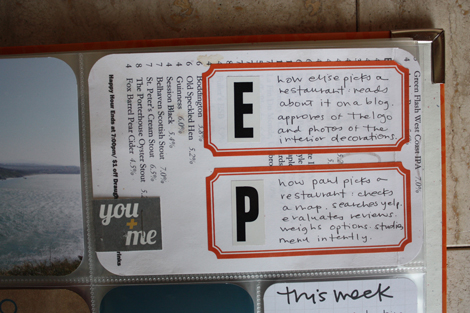 E
how elise picks a
restaurant: reads
about it on a blog.
approves of the logo
and photos of the
interior decorations.
P
how paul picks a
restaurant: checks
a map. searches yelp.
evaluates reviews.
weighs options. studies
menu intently.
you
+
me
this week
4 Green Flash West Coast IPA 7.0%
6 Boddington
6 Old Speckled Hen 5.2%
4 Guinness 6.0%
4 Session Black
7 Belhaven Scottish Stout 7.0%
7 St. Peter's Cream Stout 6.5%
8 The Porterhouse Oyster Stout
4 Fox Barrel Pear Cider 4.5%
Happy Hour Ends at 7:00pm/ $1 off Draug